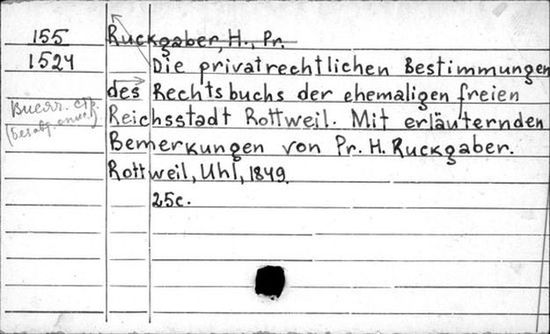 155
1524
Ruckgaber, H., Pr.
Die privatrechtlichen Bestimmungen
des Rechtsbuchs der ehemaligen freien
Reichsstadt Rottweil. Mit erläuternden
Bemerkungen von Pr. H. Ruckgaber.
Rottweil, Uhl, 1849.
25c.